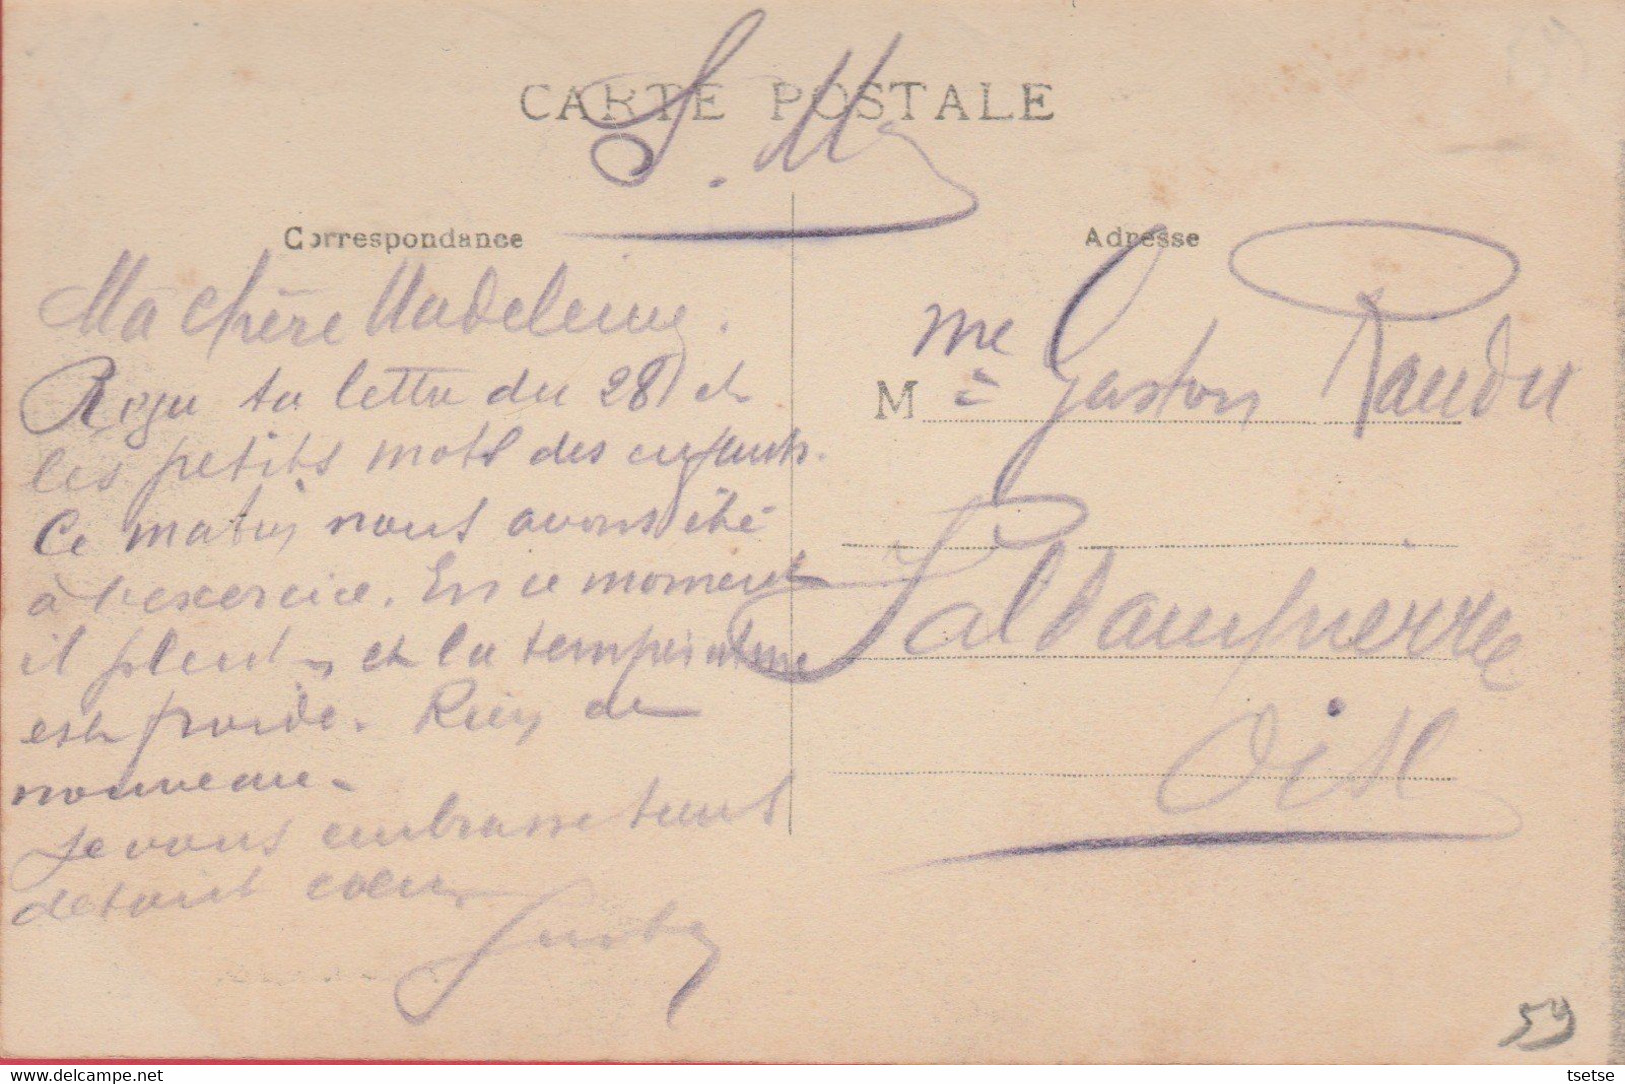 CARTE POSTALE
S. M.
Correspondance
Ma chère Madeleine.
Reçu ta lettre du 28 et
les petits mots des enfants.
Ce matin nous avons été
à l'exercice. En ce moment
il pleut et la température
est froide. Rien de
nouveau.
Je vous embrasse tous
de tout cœur
Gaston
Adresse
M me Gaston Randu
à
Saldampierre
Oise
59
tsetse